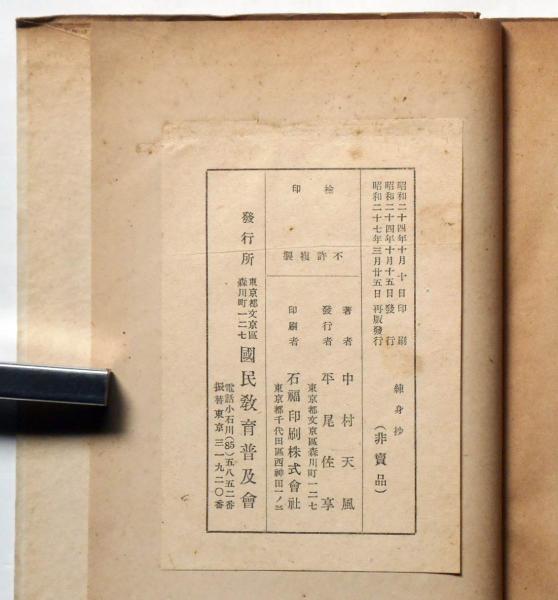 昭和二十四年十月十日印刷
昭和二十四年十月十五日發行
昭和二十七年三月廿五日再版發行
練身抄
(非賣品)
檢印
不許複製
著者 中村天風
東京都文京區森川町一二七
發行者 平尾佐亨
印刷者 石福印刷株式會社
東京都千代田區西神田一ノ三
發行所 東京都文京區森川町一二七 國民教育普及會
電話小石川(85)五八五二番
振替東京三一九二〇番